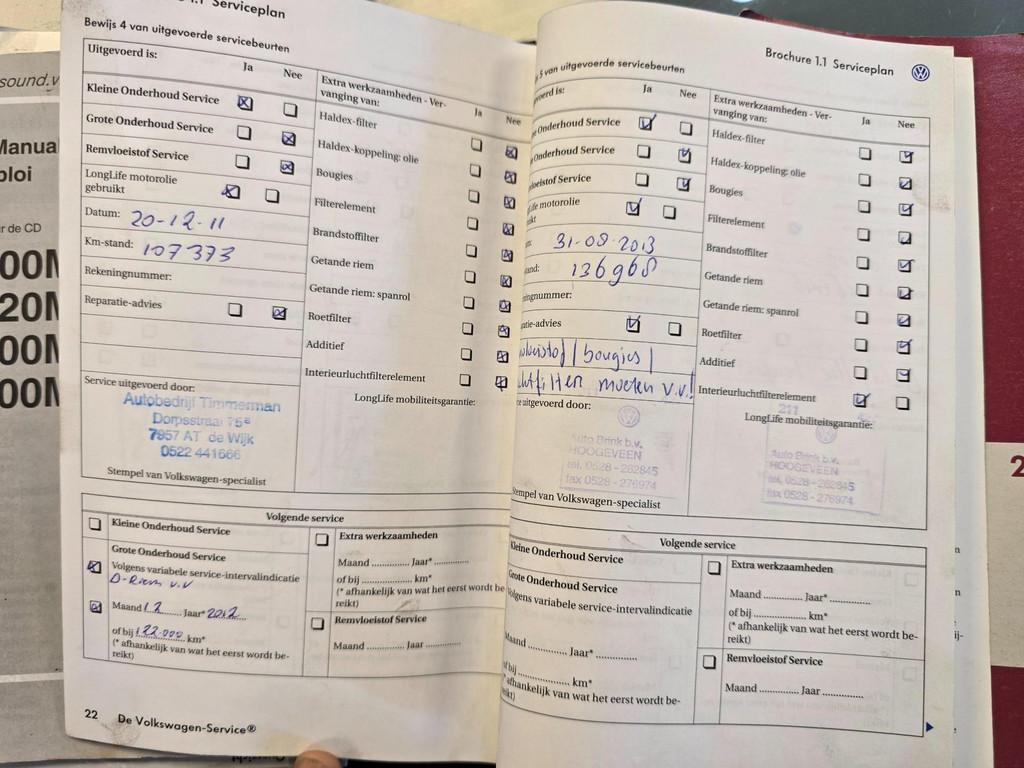 1.1 Serviceplan
Bewijs 4 van uitgevoerde servicebeurten
Uitgevoerd is:
Ja
Nee
Kleine Onderhoud Service
Grote Onderhoud Service
Remvloeistof Service
LongLife motorolie
gebruikt
Datum: 20-12-11
Km-stand: 107373
Rekeningnummer:
Reparatie-advies
Service uitgevoerd door:
Autobedrijf Timmerman
Dorpsstraat 75ᵃ
7957 AT de Wijk
0522 441666
Stempel van Volkswagen-specialist
Extra werkzaamheden - Ver-
vanging van:
Ja
Nee
Haldex-filter
Haldex-koppeling: olie
Bougies
Filterelement
Brandstoffilter
Getande riem
Getande riem: spanrol
Roetfilter
Additief
Interieurluchtfilterelement
LongLife mobiliteitsgarantie:
Volgende service
Kleine Onderhoud Service
Grote Onderhoud Service
Volgens variabele service-intervalindicatie
D-Riem v.v
Maand 12 Jaar* 2012
of bij 122.000 km*
(* afhankelijk van wat het eerst wordt be-
reikt)
Extra werkzaamheden
Maand ............. Jaar* ............
of bij ................ km*
(* afhankelijk van wat het eerst wordt be
reikt)
Remvloeistof Service
Maand ............ Jaar ............
22 De Volkswagen-Service®
Brochure 1.1 Serviceplan
5 van uitgevoerde servicebeurten
voerd is:
Ja
Nee
e Onderhoud Service
Onderhoud Service
loeistof Service
ife motorolie
ikt
31-08-2013
and: 136968
ningnummer:
atie-advies
vloeistof / bougies /
chtfilter moeten v.v!
ce uitgevoerd door:
Auto Brink b.v.
HOOGEVEEN
tel. 0528 - 262845
fax 0528 - 276974
Stempel van Volkswagen-specialist
Extra werkzaamheden - Ver-
vanging van:
Ja
Nee
Haldex-filter
Haldex-koppeling: olie
Bougies
Filterelement
Brandstoffilter
Getande riem
Getande riem: spanrol
Roetfilter
Additief
Interieurluchtfilterelement
211
LongLife mobiliteitsgarantie:
Auto Brink b.v.
HOOGEVEEN
tel. 0528 - 262845
fax 0528 - 276974
Volgende service
Kleine Onderhoud Service
Grote Onderhoud Service
Volgens variabele service-intervalindicatie
Maand ............... Jaar* ............
of bij .................. km*
(* afhankelijk van wat het eerst wordt be-
reikt)
Extra werkzaamheden
Maand ............ Jaar* ............
of bij ................ km*
(* afhankelijk van wat het eerst wordt be-
reikt)
Remvloeistof Service
Maand ............ Jaar ............
sound.v
Manua
ploi
r de CD
00M
20M
00M
00M
2